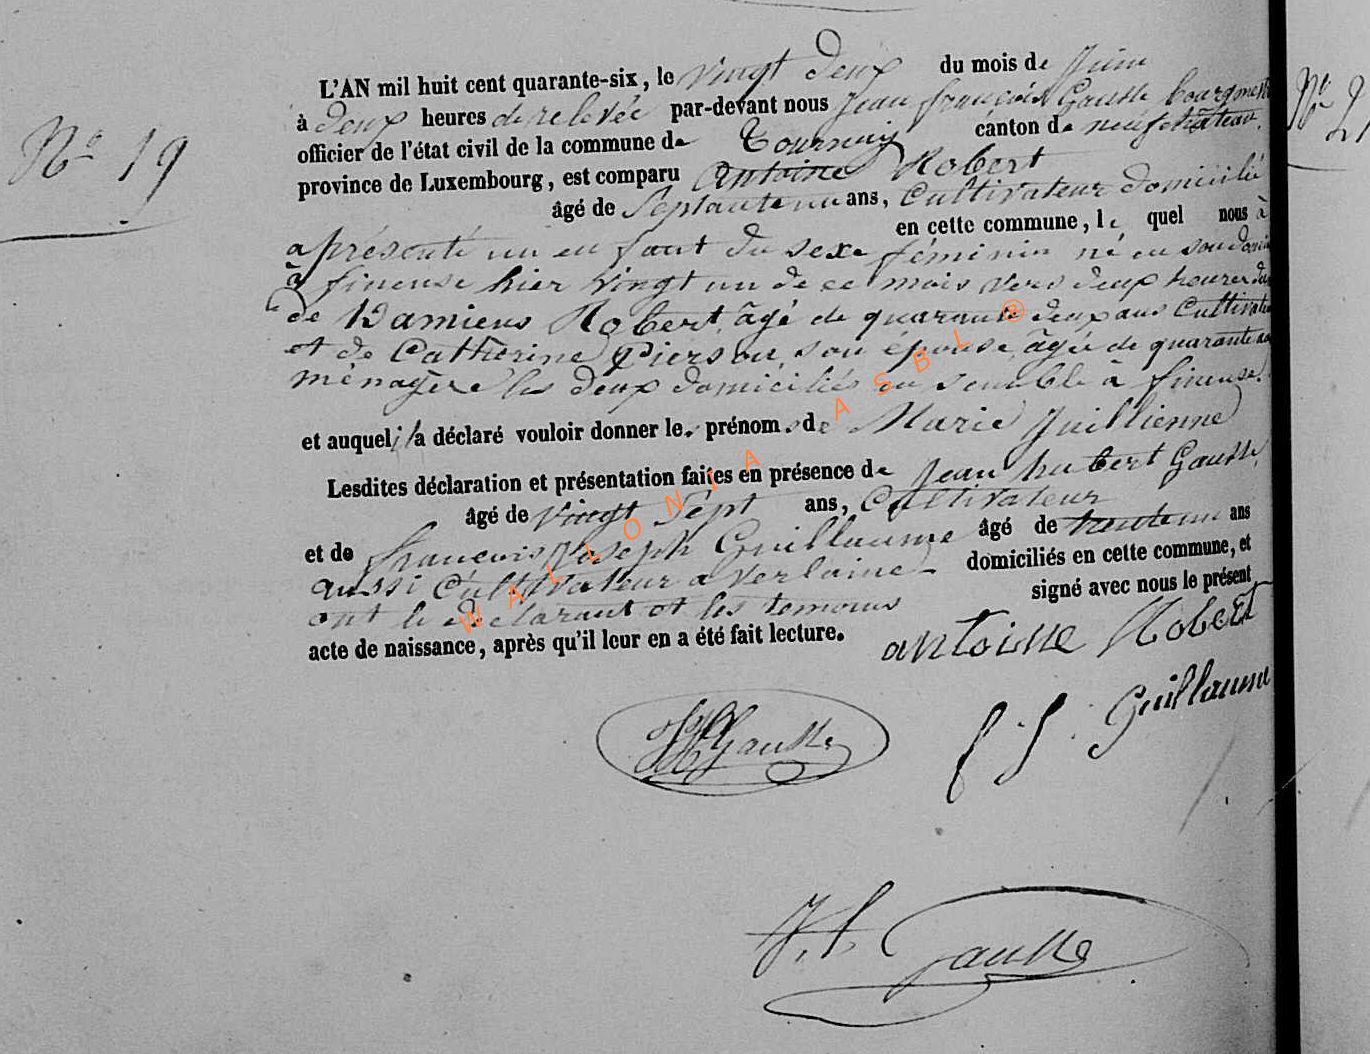 L'AN mil huit cent quarante-six, le vingt deux du mois de Juin
à deux heures de relevée par-devant nous Jean françois Gausse bourgmest
officier de l'état civil de la commune de Tournay canton de neufchâteau.
province de Luxembourg, est comparu Antoine Robert
Nº 19
Nº 2
âgé de Septante un ans, Cultivateur domicilié
en cette commune, le quel nous à
présenté un enfant du sexe féminin né en son domi
à fineuse hier vingt un de ce mois vers deux heures du
de Damiens Robert, âgé de quarante deux ans Cultivate
et de Catherine Pierson, son épouse, âgée de quarante
ménagère les deux domiciliés ensemble à fineuse.
et auquel il a déclaré vouloir donner les prénoms de Marie Juillienne
Lesdites déclaration et présentation faites en présence de Jean hubert Gausse
âgé de vingt Sept ans, Cultivateur
et de françois Joseph Guillaume âgé de trente un ans
aussi Cultivateur a Verlaine domiciliés en cette commune, et
ont le déclarant et les temoins signé avec nous le présent
acte de naissance, après qu'il leur en a été fait lecture.
antoine Robert
f J Guillaume
JH Gausse
J. f. Gausse
WALLONIA ASBL ®